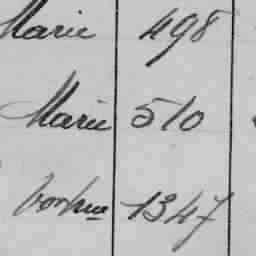 Marie 498
Marie 510
1347